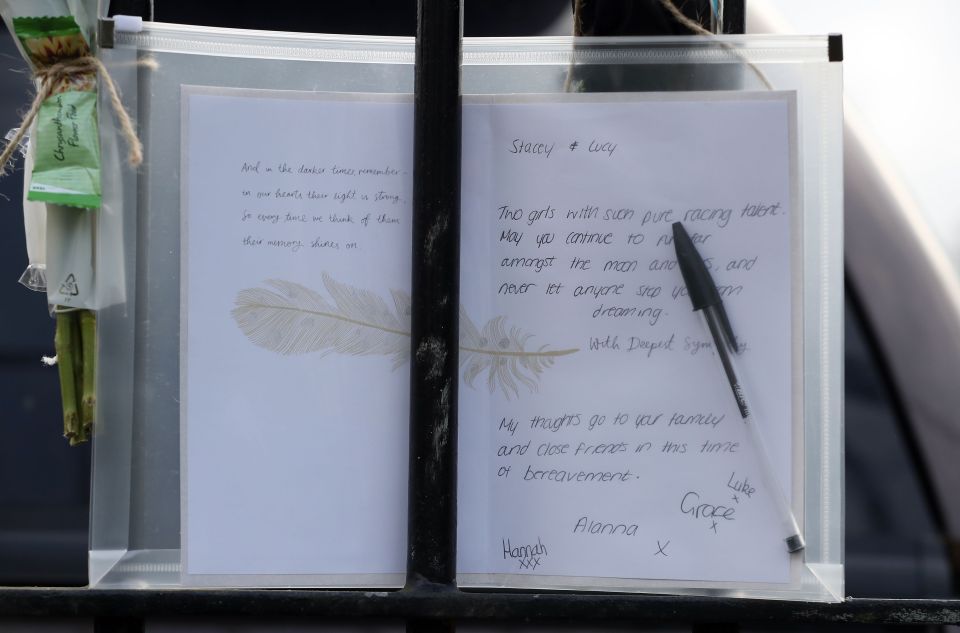 Chrysanthemum
Flower Food
And in the darker times, remember -
in our hearts their light is strong,
So every time we think of them
their memory shines on.
Stacey & Lucy
Two girls with such pure racing talent.
May you continue to run far
amongst the moon and and
never let anyone stop
dreaming.
With Deepest
My thoughts go to your family
and close friends in this time
of bereavement.
Luke
x
Grace
x
Alanna
x
Hannah
xxx